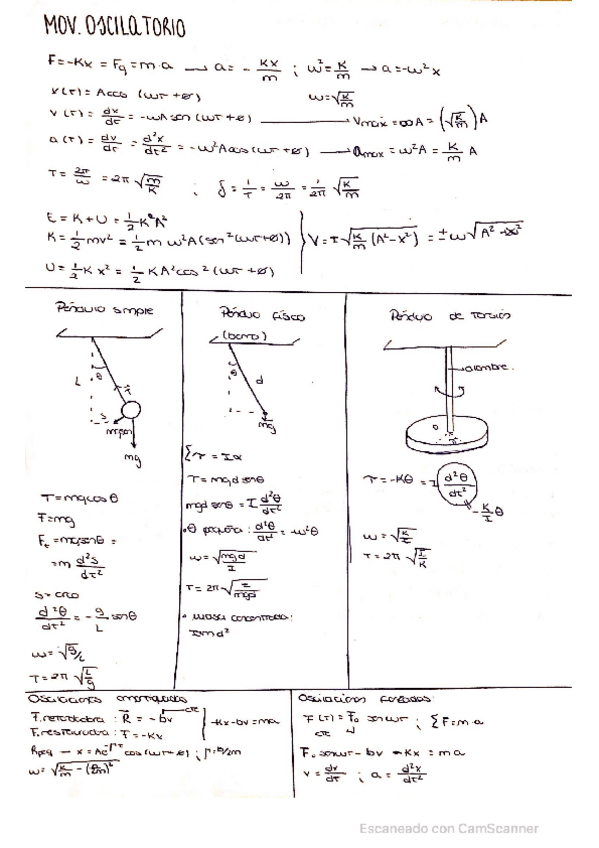 MOV. OSCILATORIO
F=-Kx = Fg = m·a → a = - Kx/m ; ω² = K/m → a = -ω²x
x(t) = A cos (ωt + ø) ω = √K/m
v(t) = dx/dt = -ωA sen (ωt + ø) → Vmax = ωA = (√K/m) A
a(t) = dv/dt = d²x/dt² = -ω²A cos (ωt + ø) → amax = ω²A = K/m A
T = 2π/ω = 2π √m/K ; f = 1/T = ω/2π = 1/2π √K/m
E = K + U = 1/2 K A²
K = 1/2 mv² = 1/2 m ω²A (sen² (ωt+ø))
V = ± √K/m (A²-x²) = ± ω √A² - x²
U = 1/2 K x² = 1/2 K A² cos² (ωt + ø)
Péndulo simple
θ
L
T
s
mg
T = mg cos θ
F = mg
Ft = mg sen θ =
= m d²s/dt²
d²θ/dt² = - g/L sen θ
ω = √g/L
T = 2π √L/g
Péndulo físico
(barra)
θ
d
mg
Στ = Iα
τ = mgd sen θ
mgd sen θ = I d²θ/dt²
· θ pequeña : d²θ/dt² = -ω²θ
ω = √mgd/I
T = 2π √I/mgd
· masa concentrada:
I=md²
Péndulo de torsión
alambre.
τ = -Kθ = I d²θ/dt²
- K/I θ
ω = √K/I
T = 2π √I/K
Oscilaciones amortiguadas
F. retardadora : R = -bv cte
F. restauradora : F = -Kx
-Kx - bv = ma
x = Ae cos (ωt + ø) ; Γ = b/2m
ω = √K/m - (b/2m)²
Oscilaciones forzadas
F(t) = F₀ sen ωt ; ΣF = m·a
cte
F₀ sen ωt - bv - Kx = ma
v = dx/dt ; a = d²x/dt²
Escaneado con CamScanner